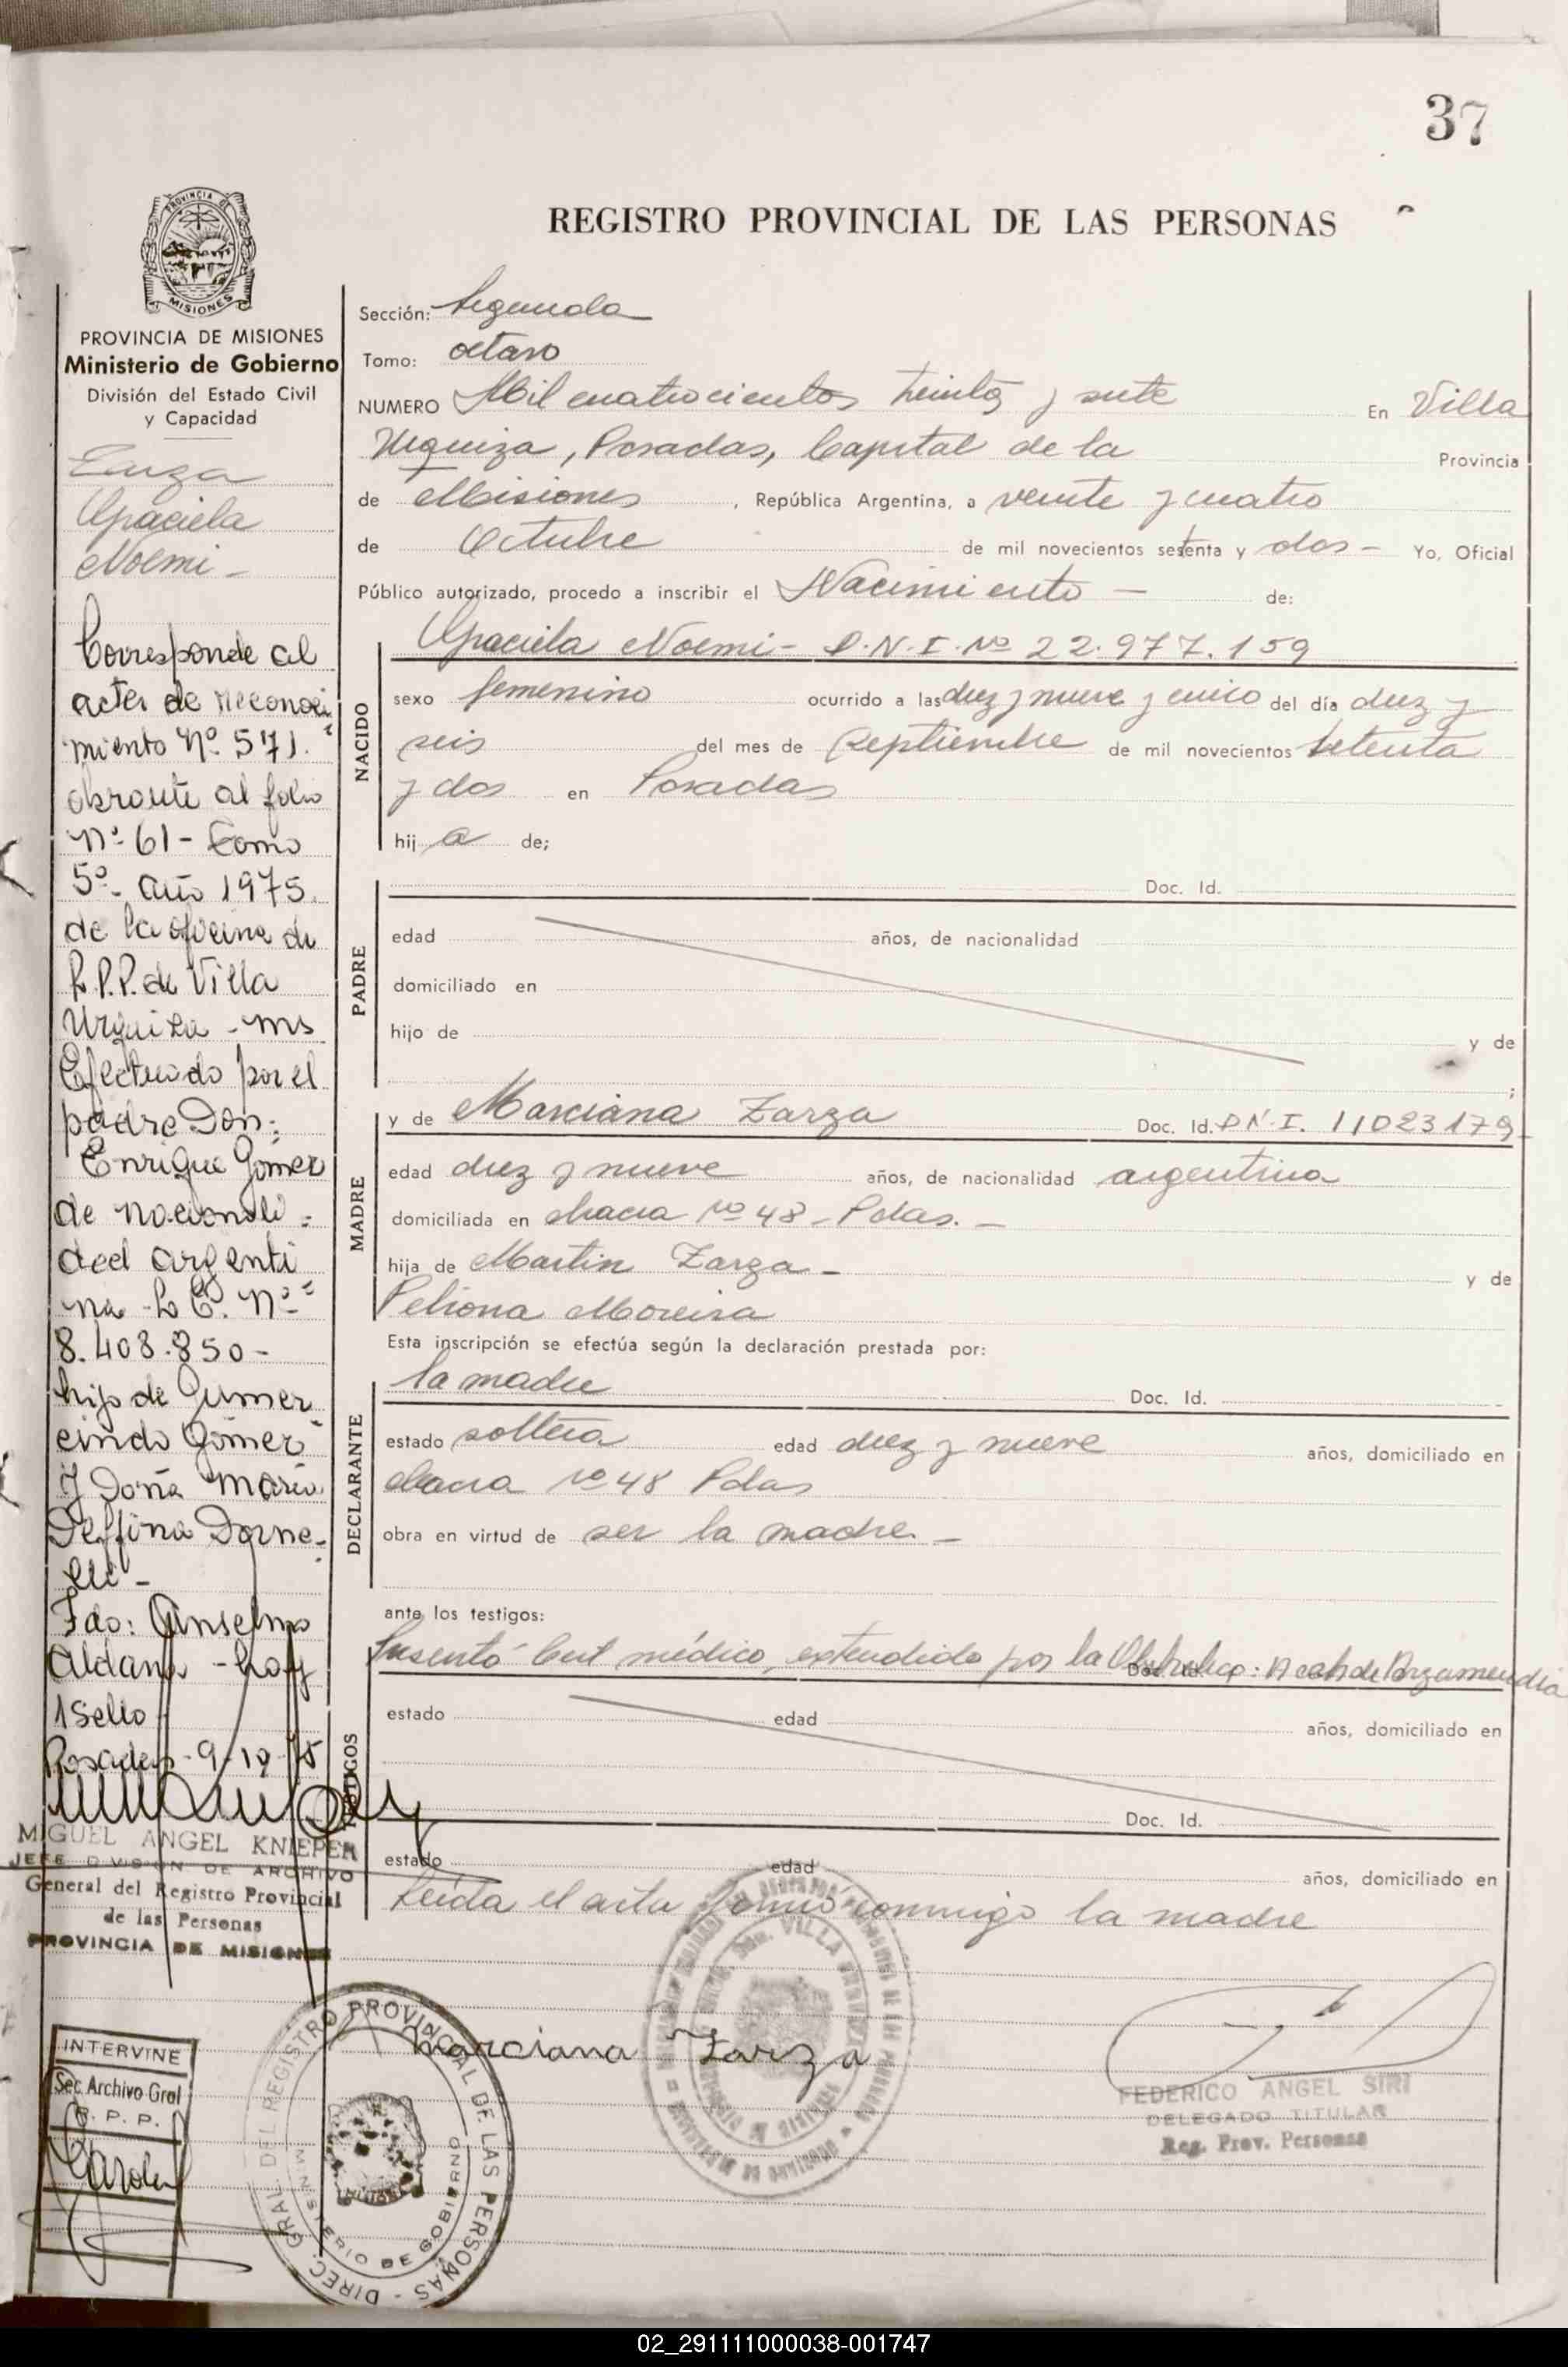 37
REGISTRO PROVINCIAL DE LAS PERSONAS
PROVINCIA DE MISIONES
PROVINCIA DE MISIONES
Ministerio de Gobierno
División del Estado Civil
y Capacidad
Zarza
Graciela
Noemi -
Corresponde al
acta de reconoci
miento Nº 571.
obrante al folio
Nº 61 - Tomo
5º - año 1975.
de la oficina de
R.P.P. de Villa
Urquiza - Ms
Efectuado por el
padre Don:
Enrique Gomez
de nacionali=
dad argenti
na - L.E. Nº=
8.408.850-
hijo de Gumer
cindo Gomez
y Doña Maria
Delfina Dorne-
Fdo: Anselmo
Aldana - hay
1 Sello
Posadas - 9-10-75
MIGUEL ANGEL KNIEPER
JEFE DIVISION DE ARCHIVO
General del Registro Provincial
de las Personas
PROVINCIA DE MISIONES
INTERVINE
Sec. Archivo Gral
R. P. P.
Sección: Segunda
Tomo: octavo
NUMERO Mil cuatrocientos treinta y siete En Villa
Urquiza, Posadas, Capital de la Provincia
de Misiones, República Argentina, a veinte y cuatro
de Octubre de mil novecientos setenta y dos - Yo, Oficial
Público autorizado, procedo a inscribir el Nacimiento — de:
Graciela Noemi - D.N.I. Nº 22.977.159
NACIDO
sexo femenino ocurrido a las diez y nueve y cinco del día diez y
seis del mes de Septiembre de mil novecientos setenta
y dos en Posadas
hij a de;
PADRE
Doc. Id.
edad años, de nacionalidad
domiciliado en
hijo de y de
;
MADRE
y de Marciana Zarza Doc. Id. D.N.I. 11023179
edad diez y nueve años, de nacionalidad argentina
domiciliada en chacra Nº 48 - Pdas. -
hija de Martin Zarza - y de
Petrona Moreira
Esta inscripción se efectúa según la declaración prestada por:
DECLARANTE
la madre Doc. Id.
estado soltera edad diez y nueve años, domiciliado en
chacra Nº 48 Pdas
obra en virtud de ser la madre. -
ante los testigos:
TESTIGOS
Presentó Cert médico, extendido por la Obstetrica: Doc. Id.
estado edad años, domiciliado en
Doc. Id.
estado edad años, domiciliado en
Leída el acta firmó conmigo la madre
Marciana Zarza
FEDERICO ANGEL SIRI
DELEGADO TITULAR
Reg. Prov. Personas
DIREC. GRAL. DEL REGISTRO PROVINCIAL DE LAS PERSONAS -
MINISTERIO DE GOBIERNO
02_291111000038-001747